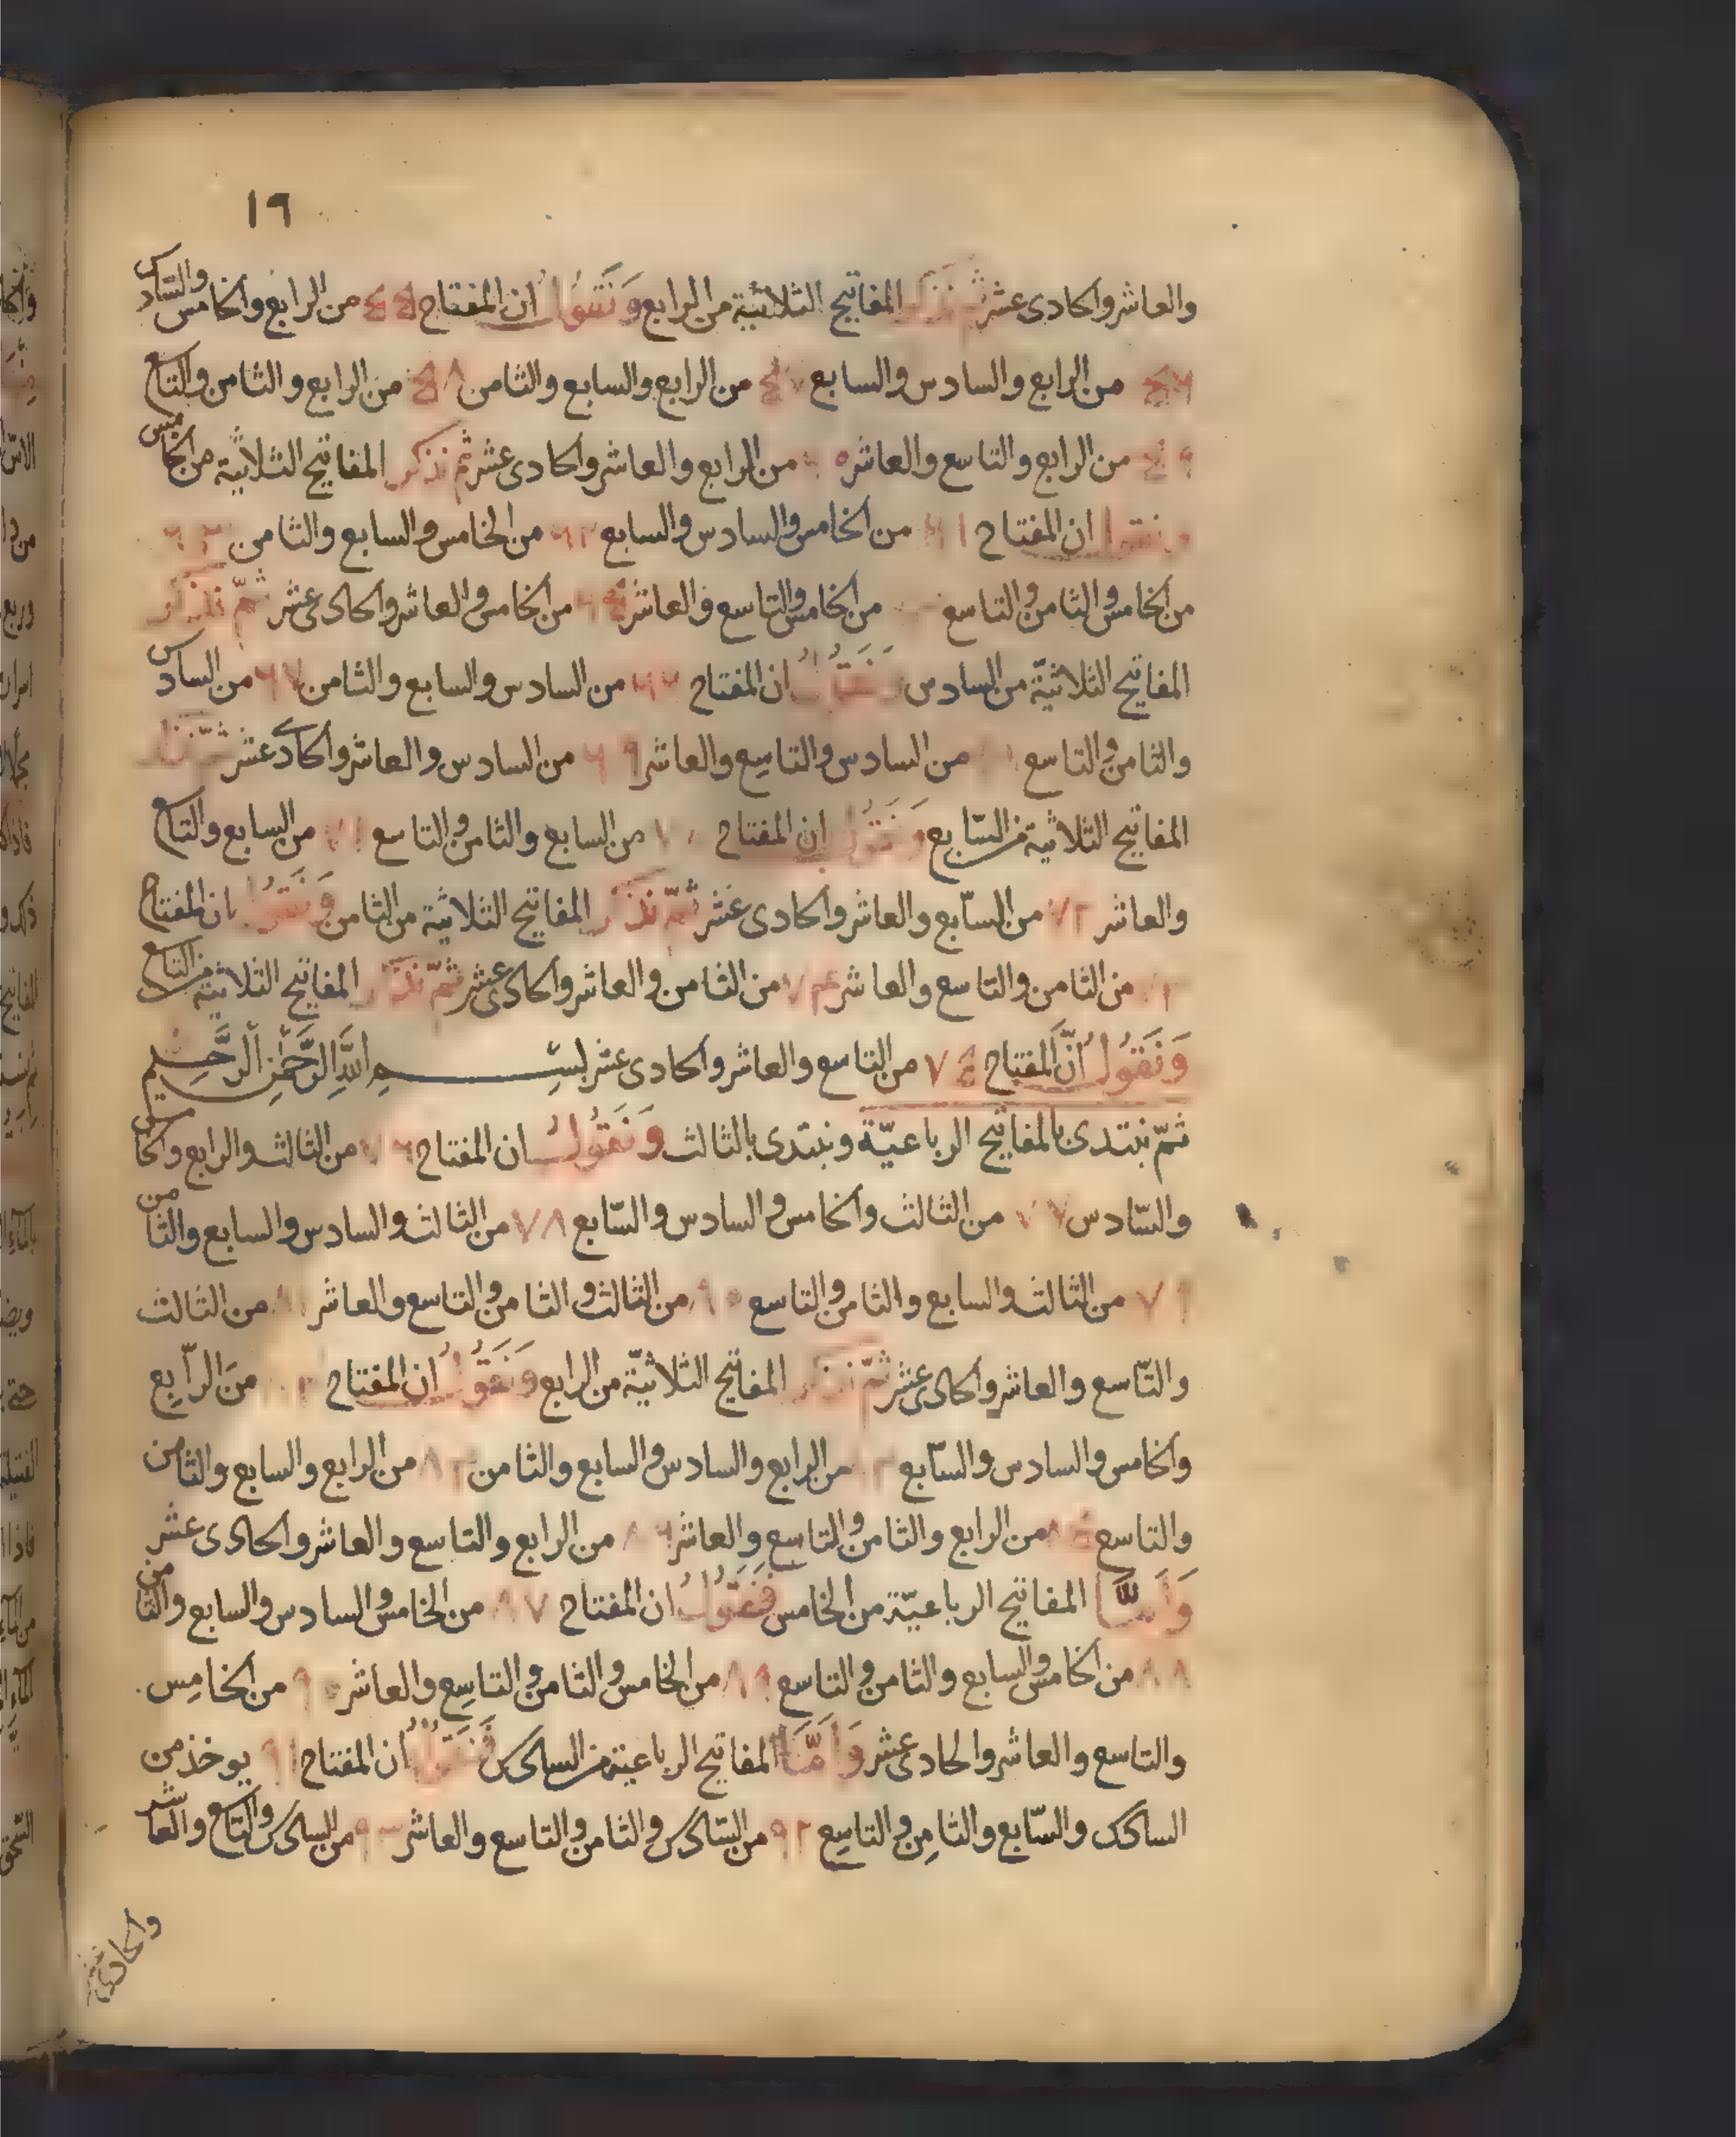 ١٩
والعاشر والحادى عشر ثم نذكر المفاتيح الثلاثية من الرابع ونقول ان المفتاح ٥٥ من الرابع والخامس والسادس
٥٦ من الرابع والسادس والسابع ٥٧ من الرابع والسابع والثامن ٥٨ من الرابع والثامن والتاسع
٥٩ من الرابع والتاسع والعاشر ٦٠ من الرابع والعاشر والحادى عشر ثم نذكر المفاتيح الثلاثية من الخامس
ونقول ان المفتاح ٦١ من الخامس والسادس والسابع ٦٢ من الخامس والسابع والثامن ٦٣
من الخامس والثامن والتاسع من الخامس والتاسع والعاشر ٦٥ من الخامس والعاشر والحادى عشر ثمّ نذكر
المفاتيح الثلاثيّة من السادس ونقول ان المفتاح ٦٦ من السادس والسابع والثامن ٦٧ من السادس
والثامن والتاسع من السادس والتاسع والعاشر ٦٩ من السادس والعاشر والحادى عشر ثمّ نذكر
المفاتيح الثلاثية من السّابع ونقول ان المفتاح ٧٠ من السابع والثامن والتاسع ٧١ من السابع والتاسع
والعاشر ٧٢ من السّابع والعاشر والحادى عشر ثمّ نذكر المفاتيح الثلاثية من الثامن ونقول بان المفتاح
٧٣ من الثامن والتاسع والعاشر ٧٤ من الثامن والعاشر والحادى عشر ثمّ نذكر المفاتيح الثلاثية من التاسع
وَنَقُولُ انَّ المفتاح ٧٥ من التاسع والعاشر والحادى عشر بسم اللهِ الرَّحْمٰنِ الرَّحِيمِ
ثمّ نبتدى بالمفاتيح الرباعيّة ونبتدى بالثالث وَنَقُولُ ان المفتاح ٧٦ من الثالث والرابع والخامس
والسّادس ٧٧ من الثالث والخامس والسادس والسّابع ٧٨ من الثالث والسادس والسابع والثامن
٧٩ من الثالث والسابع والثامن والتاسع ٨٠ من الثالث والثامن والتاسع والعاشر ٨١ من الثالث
والتّاسع والعاشر والحادى عشر ثمّ نذكر المفاتيح الثلاثيّة من الرابع وَنَقُولُ ان المفتاح ٨٢ منَ الرّابِع
والخامس والسادس والسّابع ٨٣ من الرابع والسادس والسابع والثامن ٨٤ من الرابع والسابع والثامن
والتاسع ٨٥ من الرابع والثامن والتاسع والعاشر ٨٦ من الرابع والتاسع والعاشر والحادى عشر
وَاَمَّا المفاتيح الرباعيّة من الخامس فَنَقُولُ ان المفتاح ٨٧ من الخامس والسادس والسابع والثامن
٨٨ من الخامس والسابع والثامن والتاسع ٨٩ من الخامس والثامن والتاسع والعاشر ٩٠ من الخامِس
والتاسع والعاشر والحادى عشر وَاَمَّا المفاتيح الرباعية من السادس فَنَقُولُ ان المفتاح ٩١ يوخذ من
السادس والسّابع والثامِن والتاسِع ٩٢ من السّادس والثامن والتاسع والعاشر ٩٣ من السادس والتاسع والعاشر
والحادى عشر